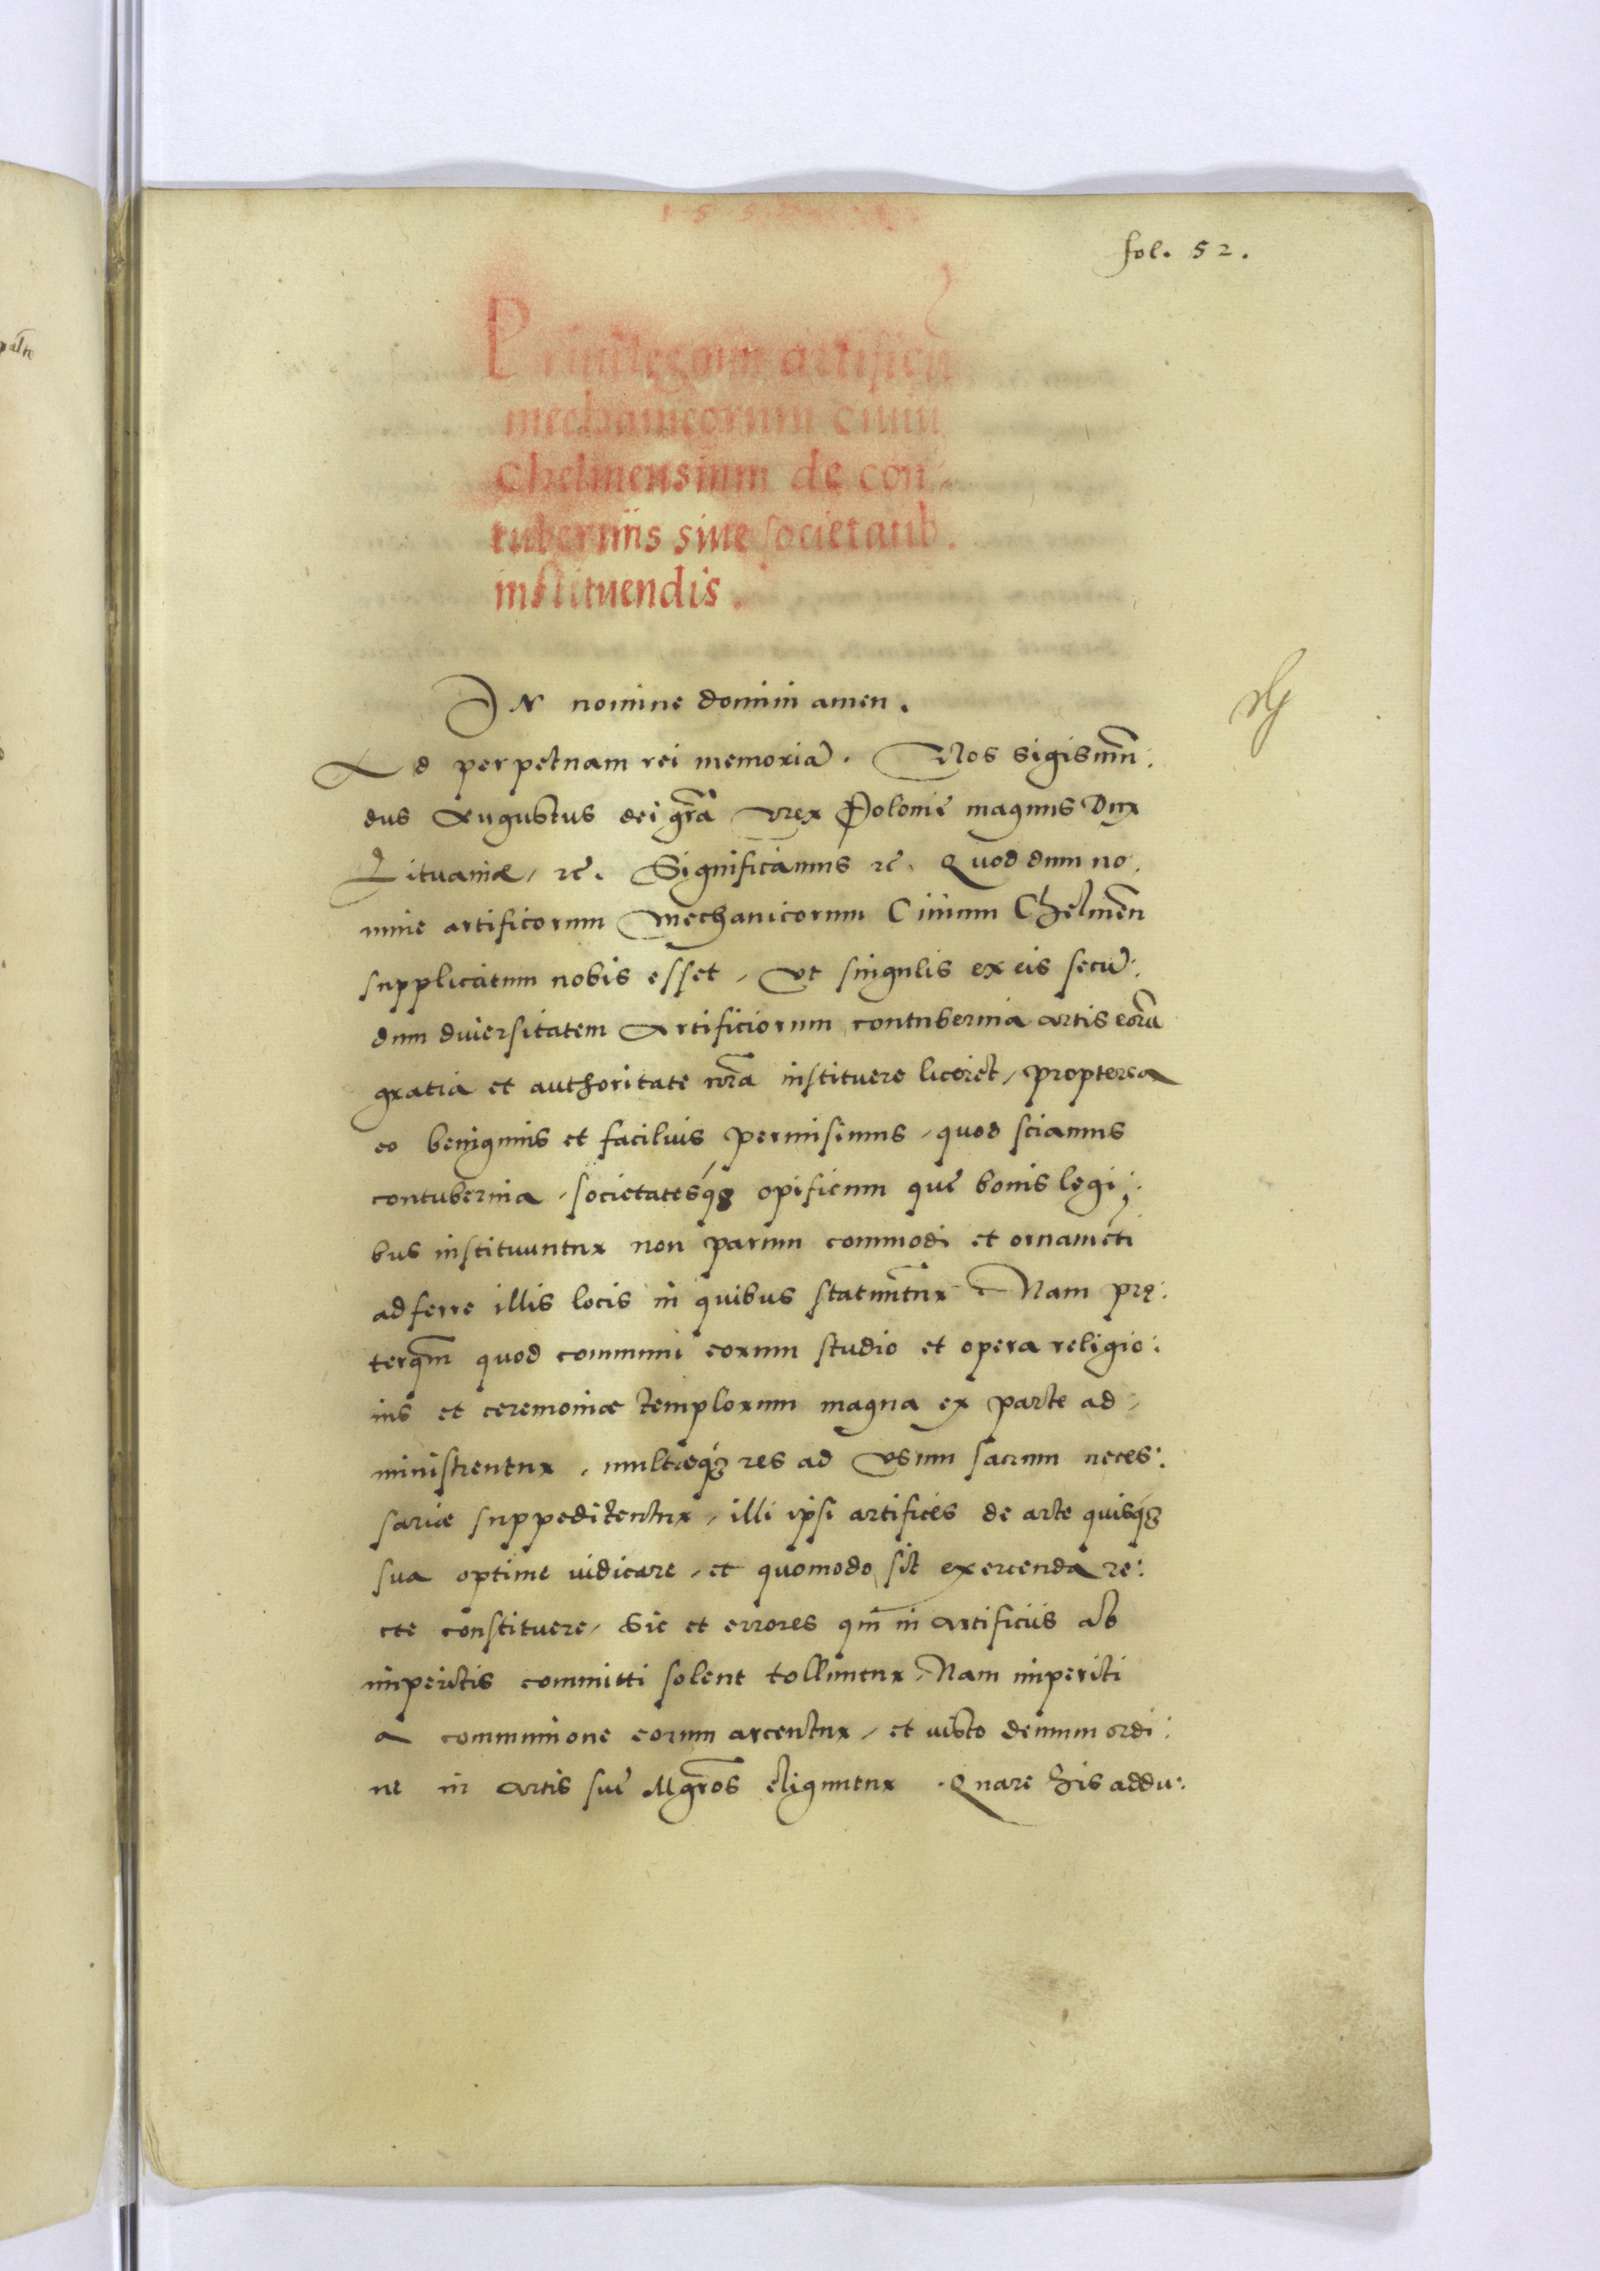 fol. 52.
Priuilegium artificū
mechanicorum ciuiū
Chelmensium de con-
tuberniis siue societatib.
instituendis.
IN nomine domini amen.
Ad perpetuam rei memoriā. Nos Sigismūn:
dus Augustus dei grā Rex Polonię magnus Dux
Lituaniæ, rc̄. Significamus rc̄. Quod dum no,
mine artificorum Mechanicorum Ciuium Chelmeñ
supplicatum nobis esset, Vt singulis ex eis secū:
dum diuersitatem Artificiorum contubernia artis eorū
gratia et authoritate nr̄a instituere liceret, propterea
eo benignius et facilius permisimus, quod sciamus
contubernia, societatesq́ꝫ opificum quę bonis legi:
bus instituuntur non parum commodi et ornamēti
adferre illis locis in quibus statuūntur. Nam prę:
terq̄m quod communi eorum studio et opera religio:
nis et ceremoniæ templorum magna ex parte ad,
ministrentur, multæq́ꝫ res ad Vsum sacrum neces:
sariæ suppeditentur, illi ipsi artifices de arte quisq́ꝫ
sua optime iudicare, et quomodo sit exercenda re:
cte constituere, Sic et errores qui in artificiis ab
imperitis committi solent tolluntur, Nam imperiti
a communione eorum arcentur, et iusto demum ordi:
ne in artis suę Mgr̄os eliguntur. Quare his addu: